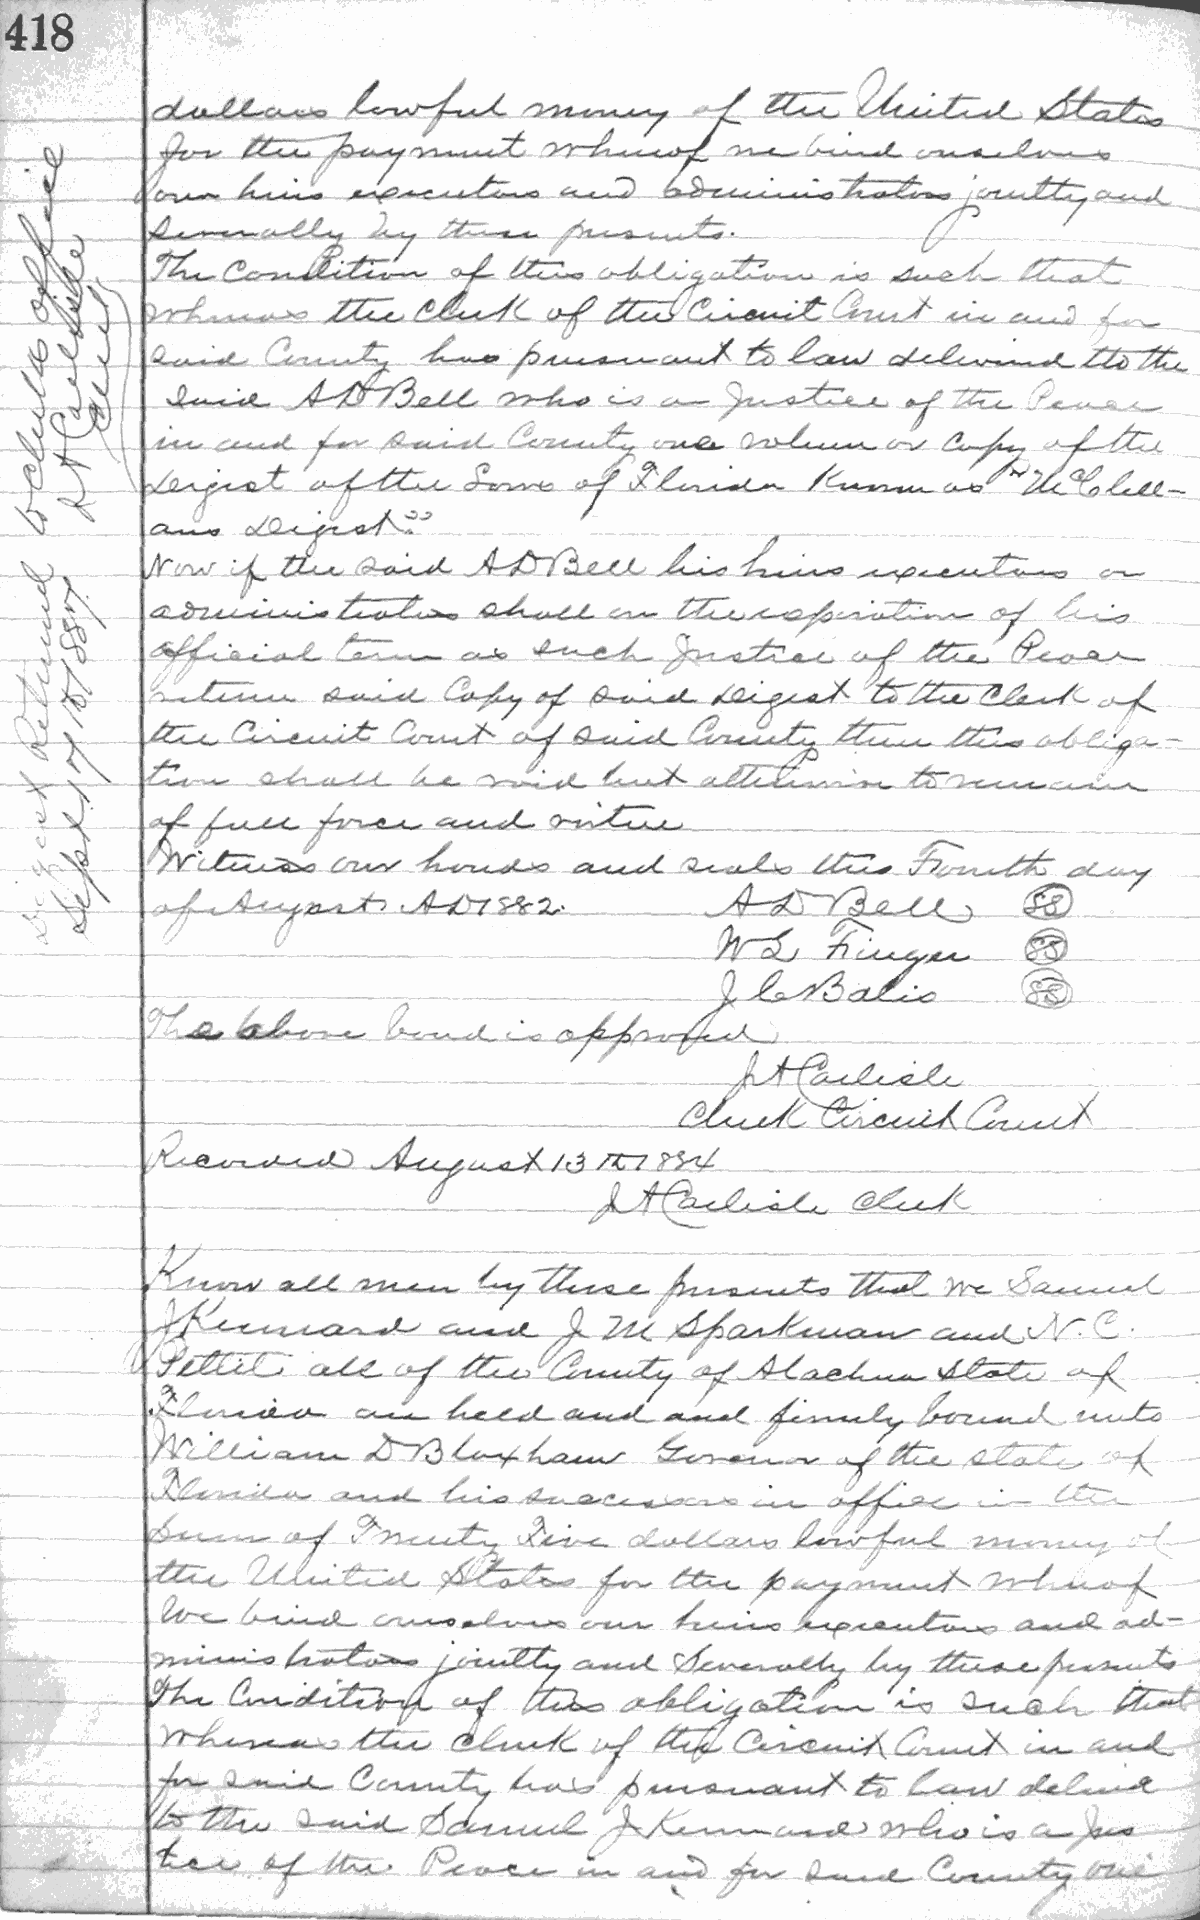 418
dollars lawful money of the United States
for the payment whereof we bind ourselves
our heirs executors and administrators jointly and
severally by these presents.
The Condition of this obligation is such that
whereas the Clerk of the Circuit Court in and for
said County has pursuant to law delivered tto the
said A D Bell who is a Justice of the Peace
in and for said County one volum or copy of the
Digest of the Laws of Florida Known as "McClell-
ans Digest"
Now if the said A D Bell his heirs executors or
administrators shall on the expiration of his
official term as such Justice of the Peace
return said Copy of said Digest to the Clerk of
the Circuit Court of said County then this obliga-
tion shall be void but otherwise to remain
of full force and virtue
Witness our hands and seals this Fourth day
of August AD 1882.
A D Bell SS
W L Finger SS
J C Balis SS
The above bond is approved
J A Carlisle
Clerk Circuit Court
Recorded August 13th 1884
J A Carlisle Clerk
Digest Returned to clerks office
Sept 17 1887.
J A Carlisle
Clerk
Know all men by these presents that we Samuel
J Kennard and J M Sparkman and N. C.
Pettit all of the County of Alachua State of
Florida are held and and firmly bound unto
William D Bloxham Govenor of the state of
Florida and his successors in office in the
sum of Twenty Five dollars lawful money of
the United States for the payment whereof
We bind ourselves our heirs executors and ad-
ministrators jointly and Severally by these presents
The Condition of this obligation is such that
whereas the clerk of the Circuit Court in and
for said County has pursuant to law delived
to the said Samuel J Kennard who is a Jus
tice of the Peace in and for said County one